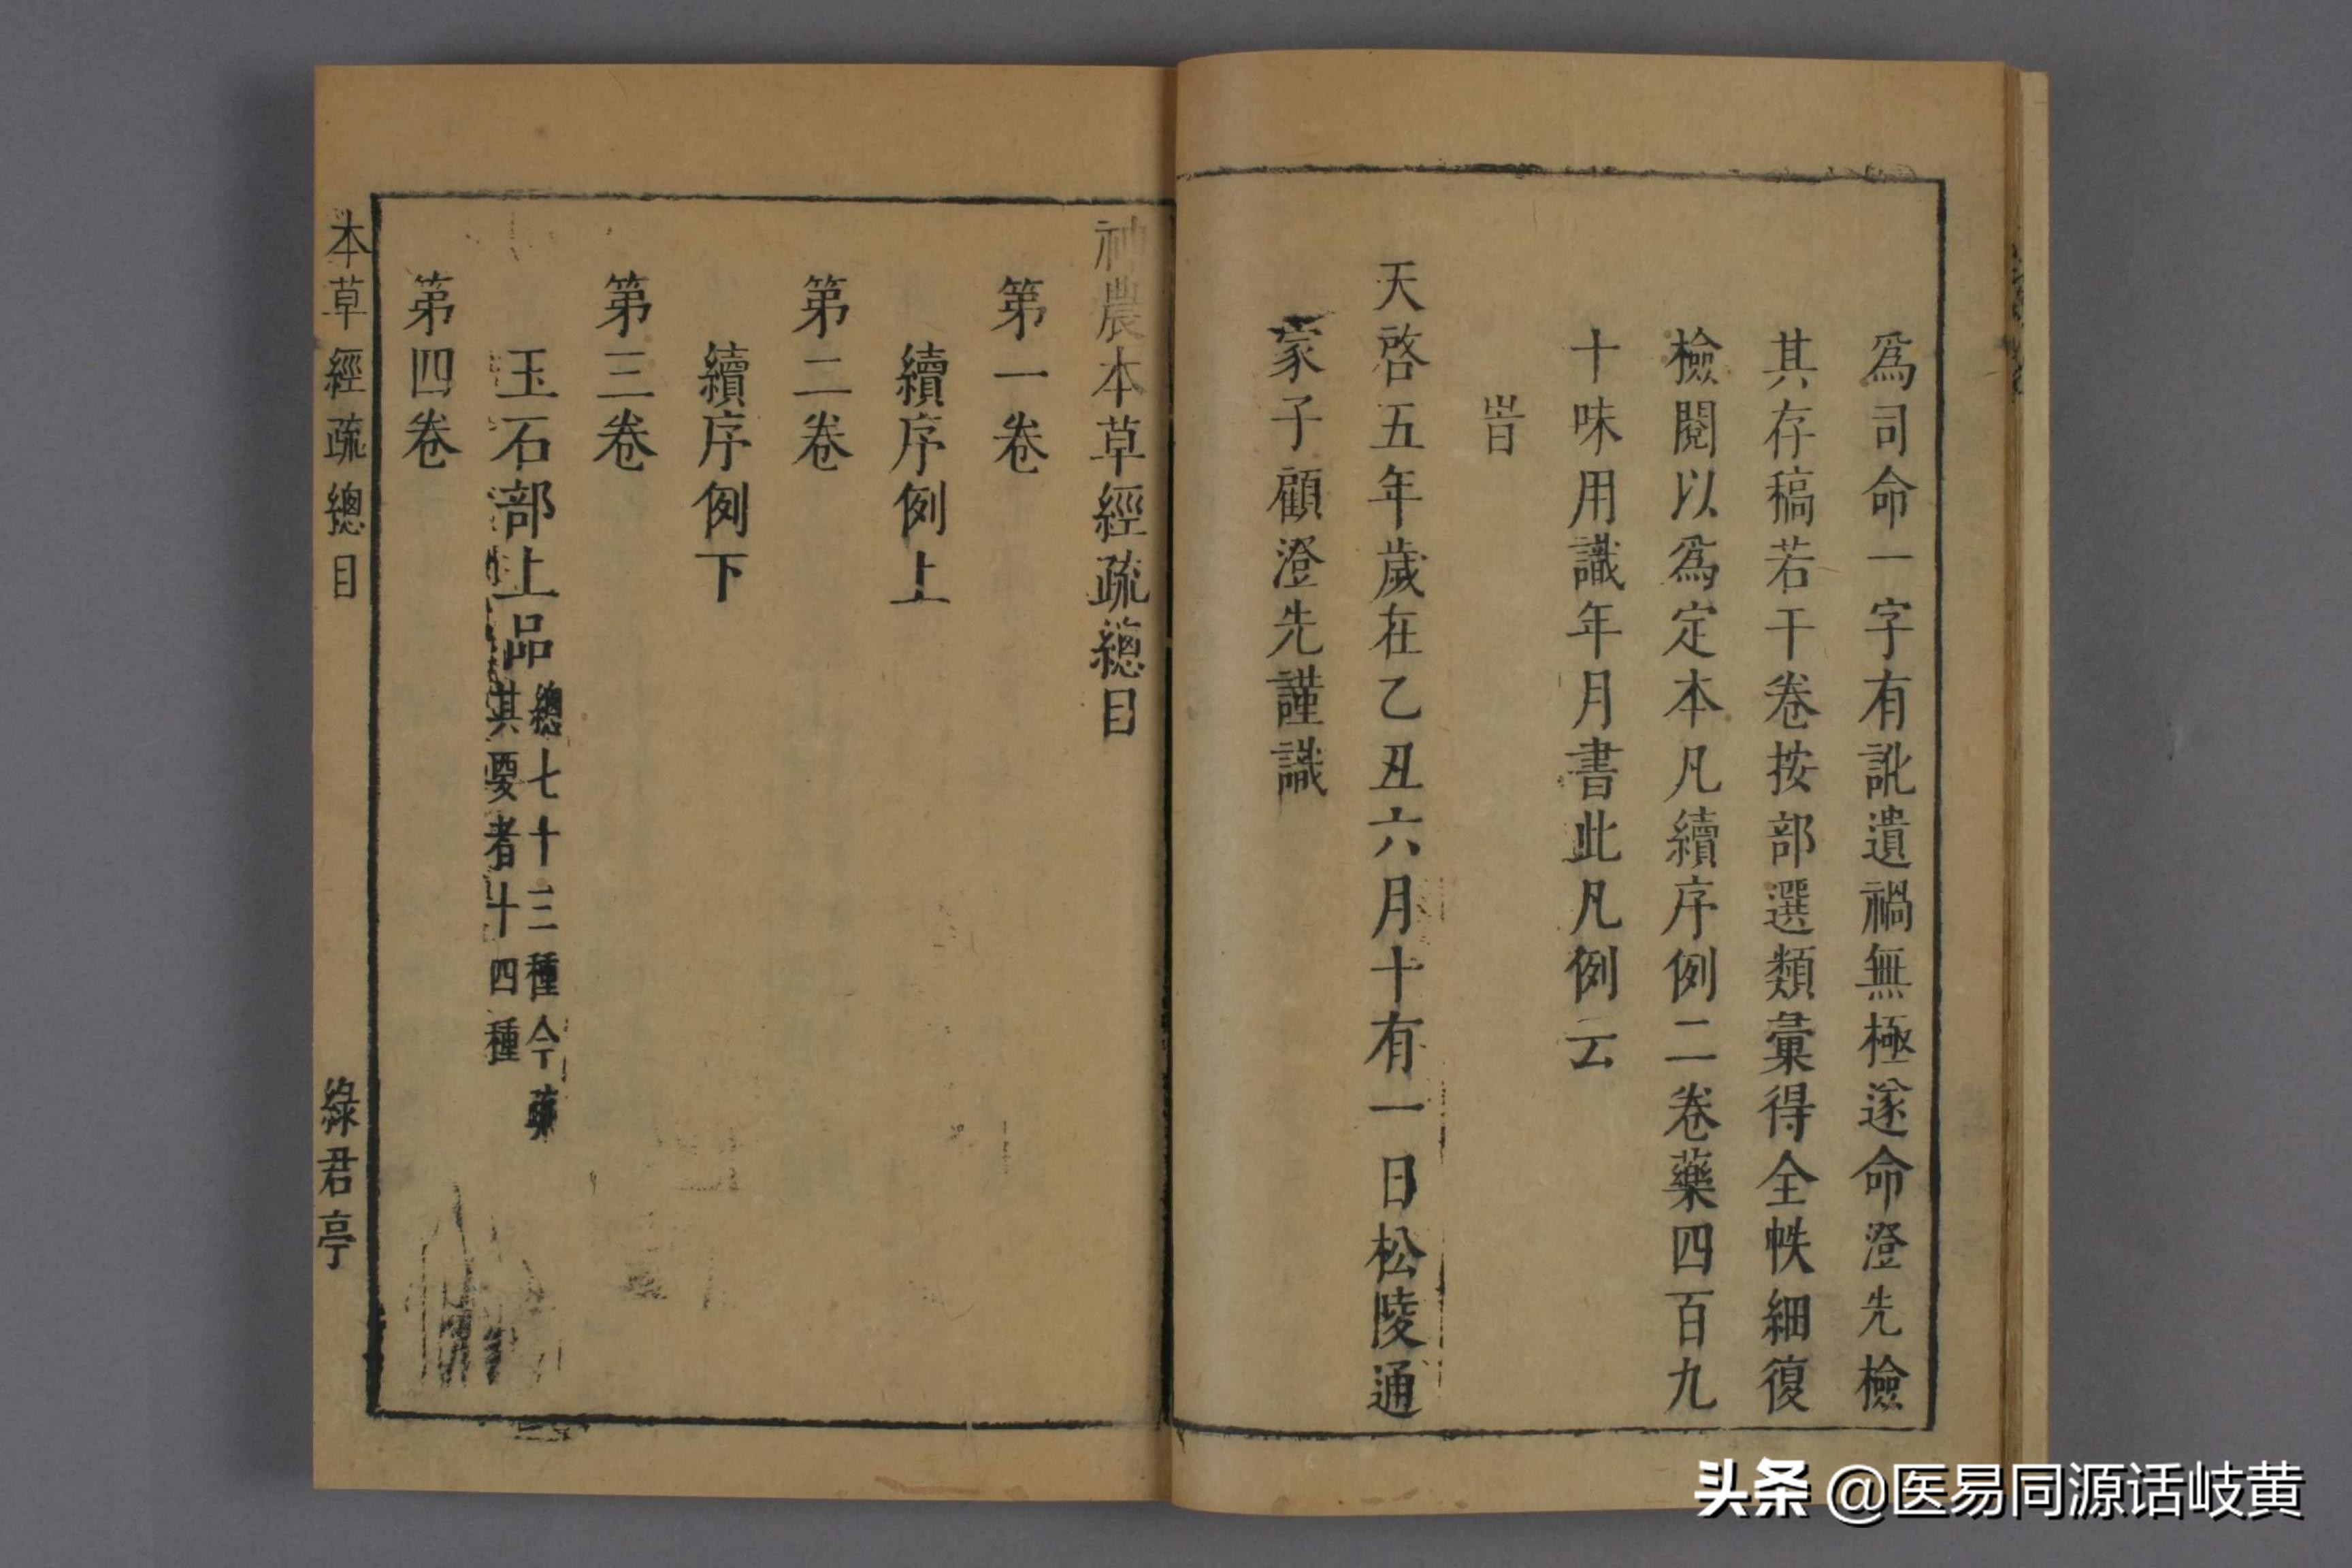 爲司命一字有訛遺禍無極遂命澄先檢
其存稿若干卷按部選類彙得全帙細復
檢閱以爲定本凡續序例二卷藥四百九
十味用識年月書此凡例云
旹
天啓五年歲在乙丑六月十有一日松陵通
家子顧澄先謹識
神農本草經疏總目
第一卷
續序例上
第二卷
續序例下
第三卷
玉石部上品
總七十三種今疏
其要者十四種
第四卷
本草經疏總目
綠君亭
头条 @医易同源话岐黄